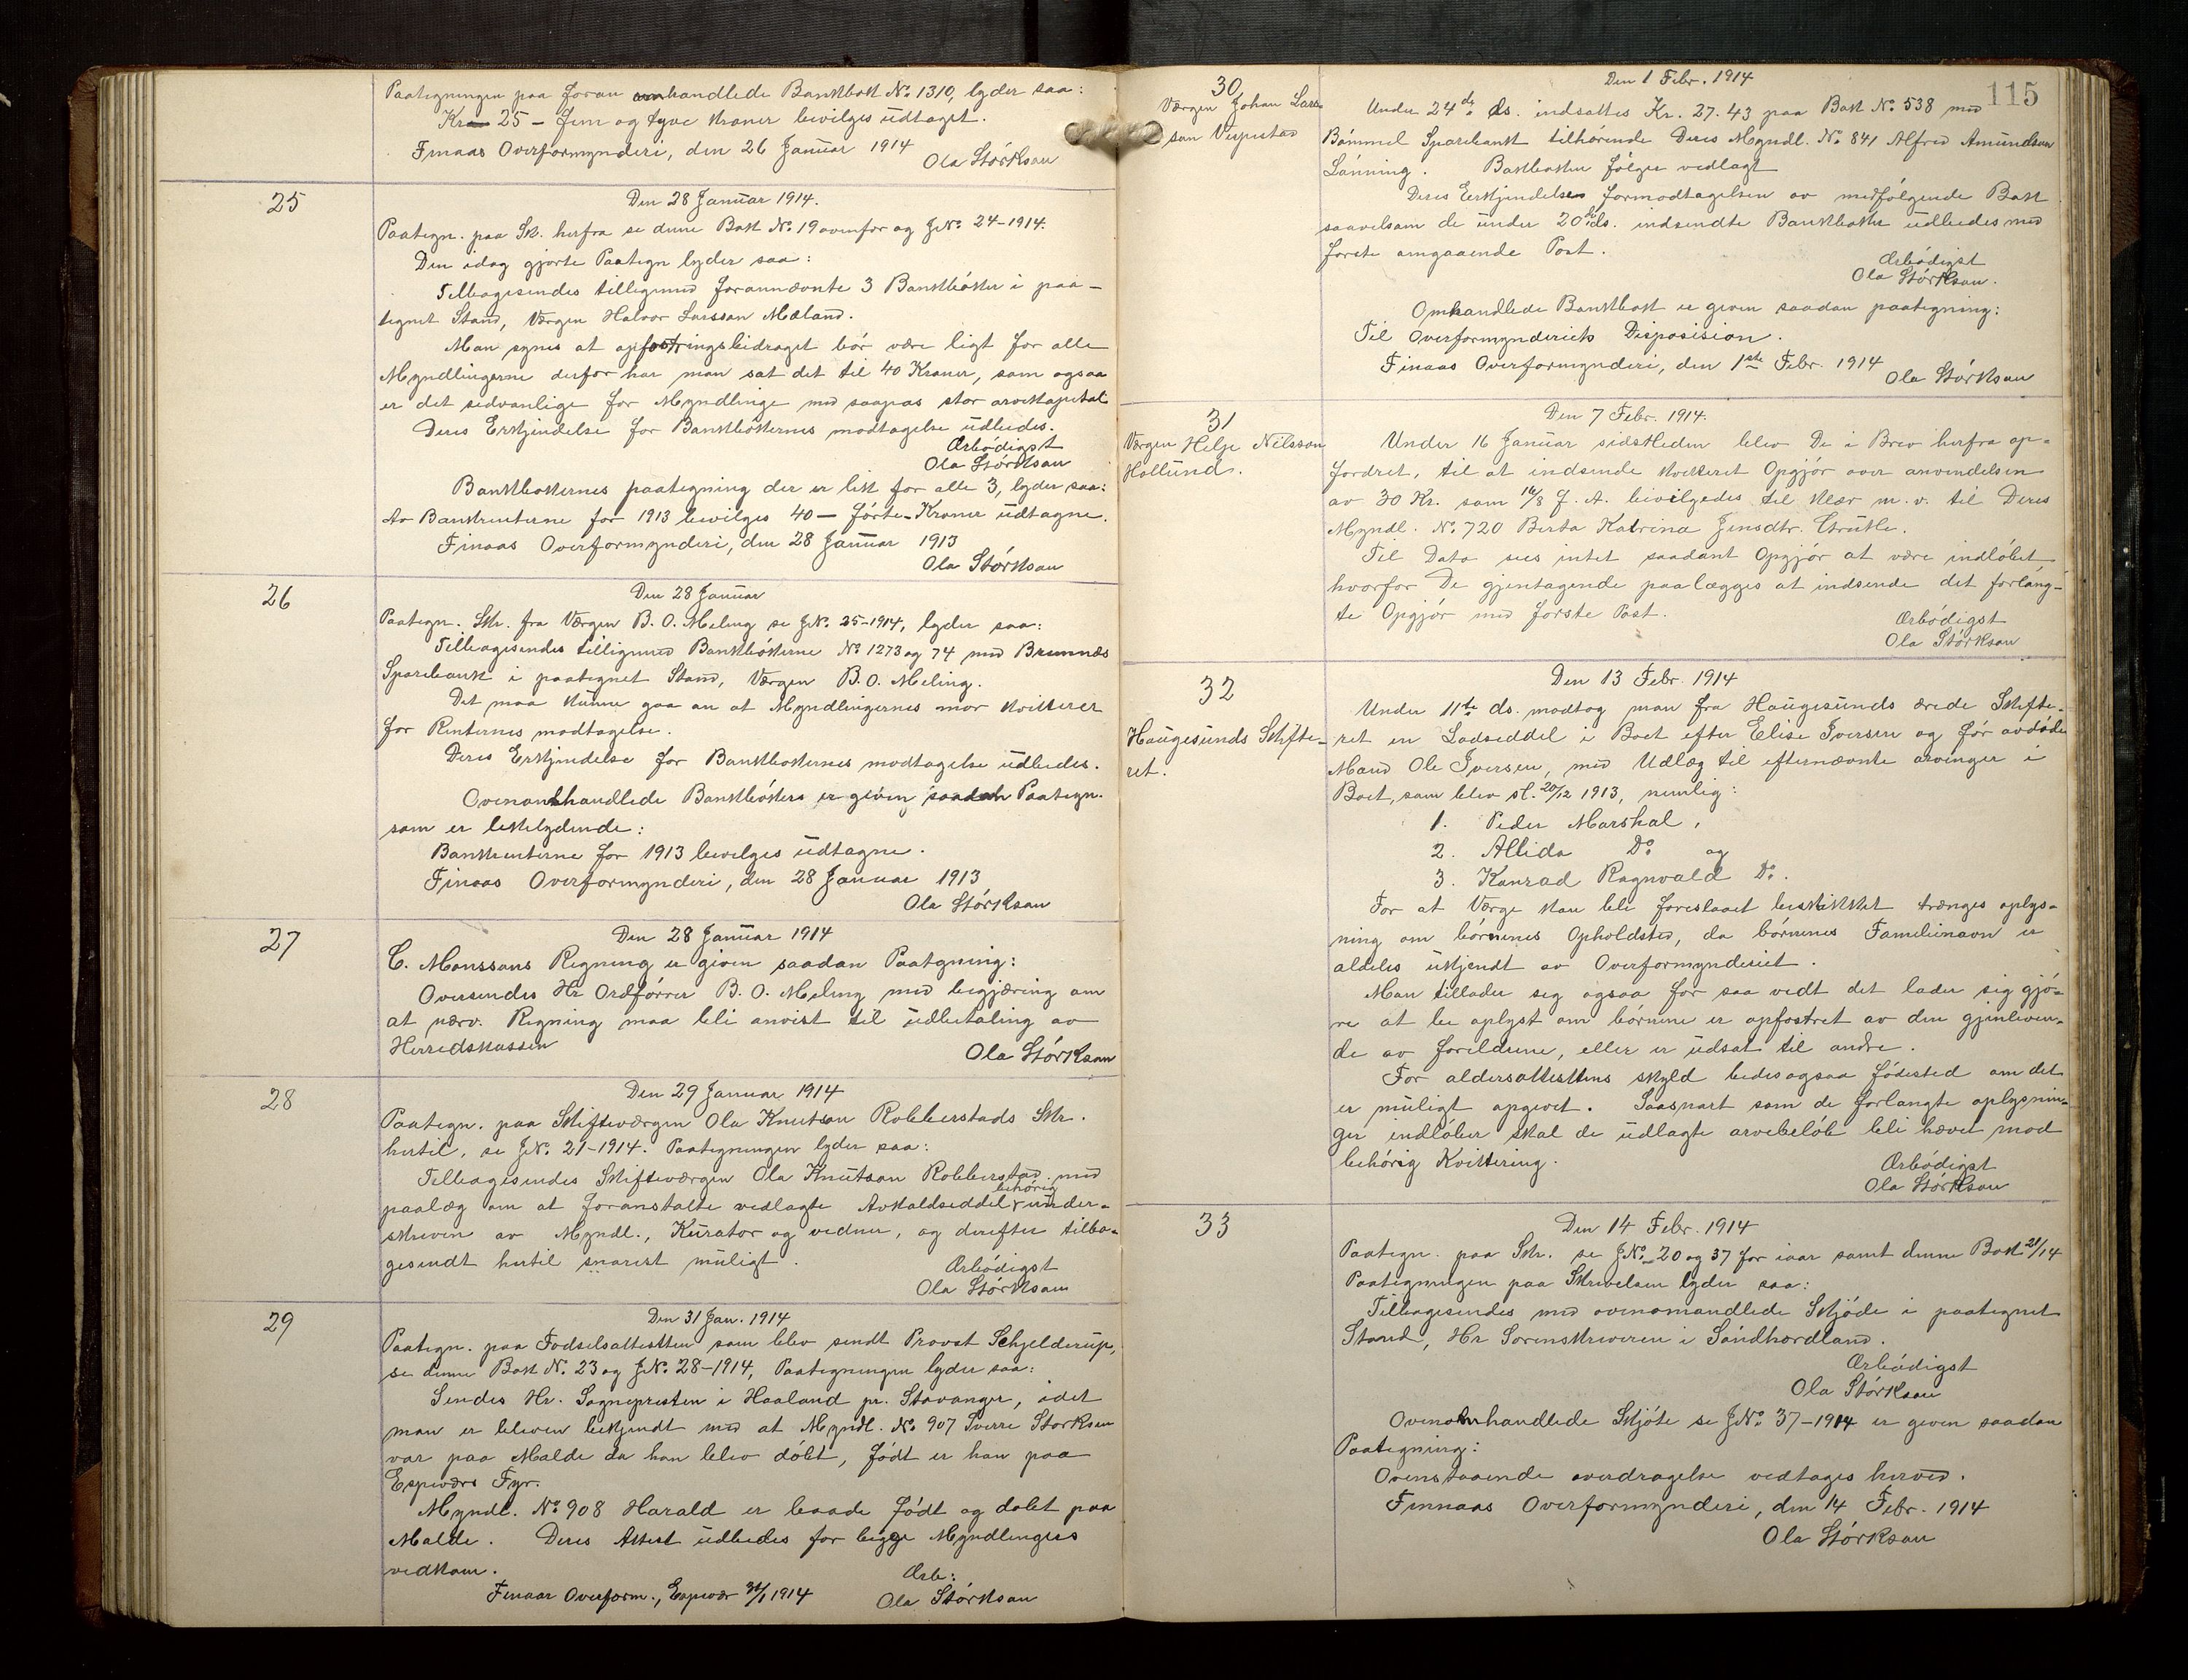 Paategningen paa foran omhandlede Bankbok No. 1310, lyder saa:
Kr. 25 - fem og tyve Kroner bevilges üdtaget.
Finaas Overformynderi, den 26 Januar 1914
Ola Störkson
25
Den 28 Januar 1914.
Paategn. paa Sk. herfra se denne Bok No. 19 ovenfor og J.No. 24-1914.
Den idag gjorte Paategn lyder saa:
Tilbagesendes tilligemed forannævnte 3 Bankböker i paa-
tegnet Stand, Værgen Halvor Larsson Mæland.
Man synes at opfostringsbidraget bör være ligt for alle
Myndlingerne derfor har man sat det til 40 Kroner, som ogsaa
er det sedvanlige for Myndlinge med saapas stor arvekapital
Deres Erkjendelse for Bankbökernes modtagelse üdbedes.
Ærbödigst
Ola Störkson
Bankbokernes paategning der er lik for alle 3, lyder saa:
Av Bankrenterne for 1913 bevilges 40 - förti - Kroner üdtagne.
Finaas Overformynderi, den 28 Januar 1913
Ola Störkson
26
Den 28 Januar
Paategn. Skr. fra Værgen B. O. Meling se J.No. 25-1914, lyder saa:
Tilbagesendes tilligemed Bankbökerne No. 1273 og 74 med Bremnæs
Sparebank i paategnet Stand, Værgen B. O. Meling.
Det maa kunne gaa an at Myndlingernes mor kvitterer
for Renternes modtagelse.
Deres Erkjendelse for Bankbokernes modtagelse üdbedes.
Ovenomhandlede Bankböker er given saadan Paategn.
som er likelydende:
Bankrenterne for 1913 bevilges üdtagne.
Finaas Overformynderi, den 28 Januar 1913
Ola Störkson
27
Den 28 Januar 1914
C. Monssons Regning er given saadan Paategning:
Oversendes Hr Ordförer B. O. Meling med begjæring om
at nærv. Regning maa bli anvist til üdbetaling av
Herredskassen
Ola Störkson
28
Den 29 Januar 1914
Paategn. paa Skifteværgen Ola Knutson Robberstads Skr.
hertil, se J.No. 21-1914. Paategningen lyder saa:
Tilbagesendes Skifteværgen Ola Knütson Robberstad med
paalæg om at foranstalte vedlagte Avkaldseddel behörig ünder-
skreven av Myndl., Kürator og vedner, og derefter tilba-
gesendt hertil snarest müligt.
Ærbödigst
Ola Störkson
29
Den 31 Jan. 1914
Paategn. paa Fodselsattesten som blev sendt Provst Schjelderüp,
se denne Bok No. 23 og J.No. 28-1914, Paategningen lyder saa:
Sendes Hr. Sognepresten i Haaland pr. Stavanger, idet
man er bleven bekjendt med at Myndl. No. 907 Sverre Storksen
var paa Malde da han blev döbt, födt er han paa
Espeværs Fyr.
Myndl. No. 908 Harald er baade födt og dobt paa
Malde. Deres Attest üdbedes for begge Myndlingers
vedkom.
Ærb:
Finaas Overform., Espevær 31/1 1914
Ola Störkson
115
30
Værgen Johan Lars
son Vespestad
Den 1 Febr. 1914
Under 24de ds. indsattes Kr. 27.43 paa Bok No. 538 med
Bömmel Sparebank tilhörende Deres Myndl. No. 841 Alfred Amundsen
Lönning. Bankboken fölger vedlagt
Deres Erkjendelse for modtagelsen av medfölgende Bok
saavelsom de ünder 20de ds. indsendte Bankboker üdbedes med
förste omgaaende Post.
Ærbödigst
Ola Störkson.
Omhandlede Bankbok er given saadan paategning:
Til Overformynderiets Disposision.
Finaas Overformynderi, den 1ste Febr. 1914
Ola Störkson
31
Værgen Helje Nilsson
Hollünd.
Den 7 Febr. 1914.
Under 16 Januar sidstleden blev De i Brev herfra op-
fordret, til at indsende kvitteret Opgjör over anvendelsen
av 30 Kr. som 16/8 f. A. bevilgedes til klær m. v. til Deres
Myndl. No. 720 Berta Katrina Jensdtr. Strütle.
Til Dato sees intet saadant Opgjör at være indlöbet
hvorfor De gjentagende paalægges at indsende det forlang-
te Opgjör med förste Post.
Ærbödigst
Ola Störkson
32
Haügesunds Skifte-
ret.
Den 13 Febr. 1914
Under 11te ds. modtog man fra Haügesünds ærede Skifte-
ret en Lodseddel i Boet efter Elise Iversen og för avdöde
Mand Ole Iversen, med Udlæg til efternævnte arvinger i
Boet, som blev sl. 20/12 1913, nemlig:
1. Peder Marshal,
2. Allida Do. og
3. Konrad Ragnvald Do.
For at Værge kan bli foreslaaet beskikket trænges oplys-
ning om börnenes Opholdsted, da börnenes Familienavn er
aldeles ükjendt av Overformynderiet.
Man tillader sig ogsaa for saa vedt det lader sig gjö-
re at be oplyst om börnene er opfostret av den gjenleven-
de av foreldrene, eller er üdsat til andre.
For aldersattestens skyld bedes ogsaa födested om det
er müligt opgivet. Saasnart som de forlangte oplysnin-
ger indlöber skal de üdlagte arvebelöb bli hævet mod
behörig Kvittering.
Ærbödigst
Ola Störkson
33
Den 14 Febr. 1914
Paategn. paa Skr. se J.No. 20 og 37 for iaar samt denne Bok 21/14
Paategningen paa Skrivelsen lyder saa:
Tilbagesendes med ovenomandlede Skjöde i paategnet
Stand, Hr Sorenskriveren i Söndhordland.
Ærbödigst
Ola Störkson
Ovenomhandlede Skjöte se J.No. 37-1914 er given saadan
Paategning:
Ovenstaaende overdragelse vedtages herved.
Finnaas Overformynderi, den 14 Febr. 1914
Ola Störkson